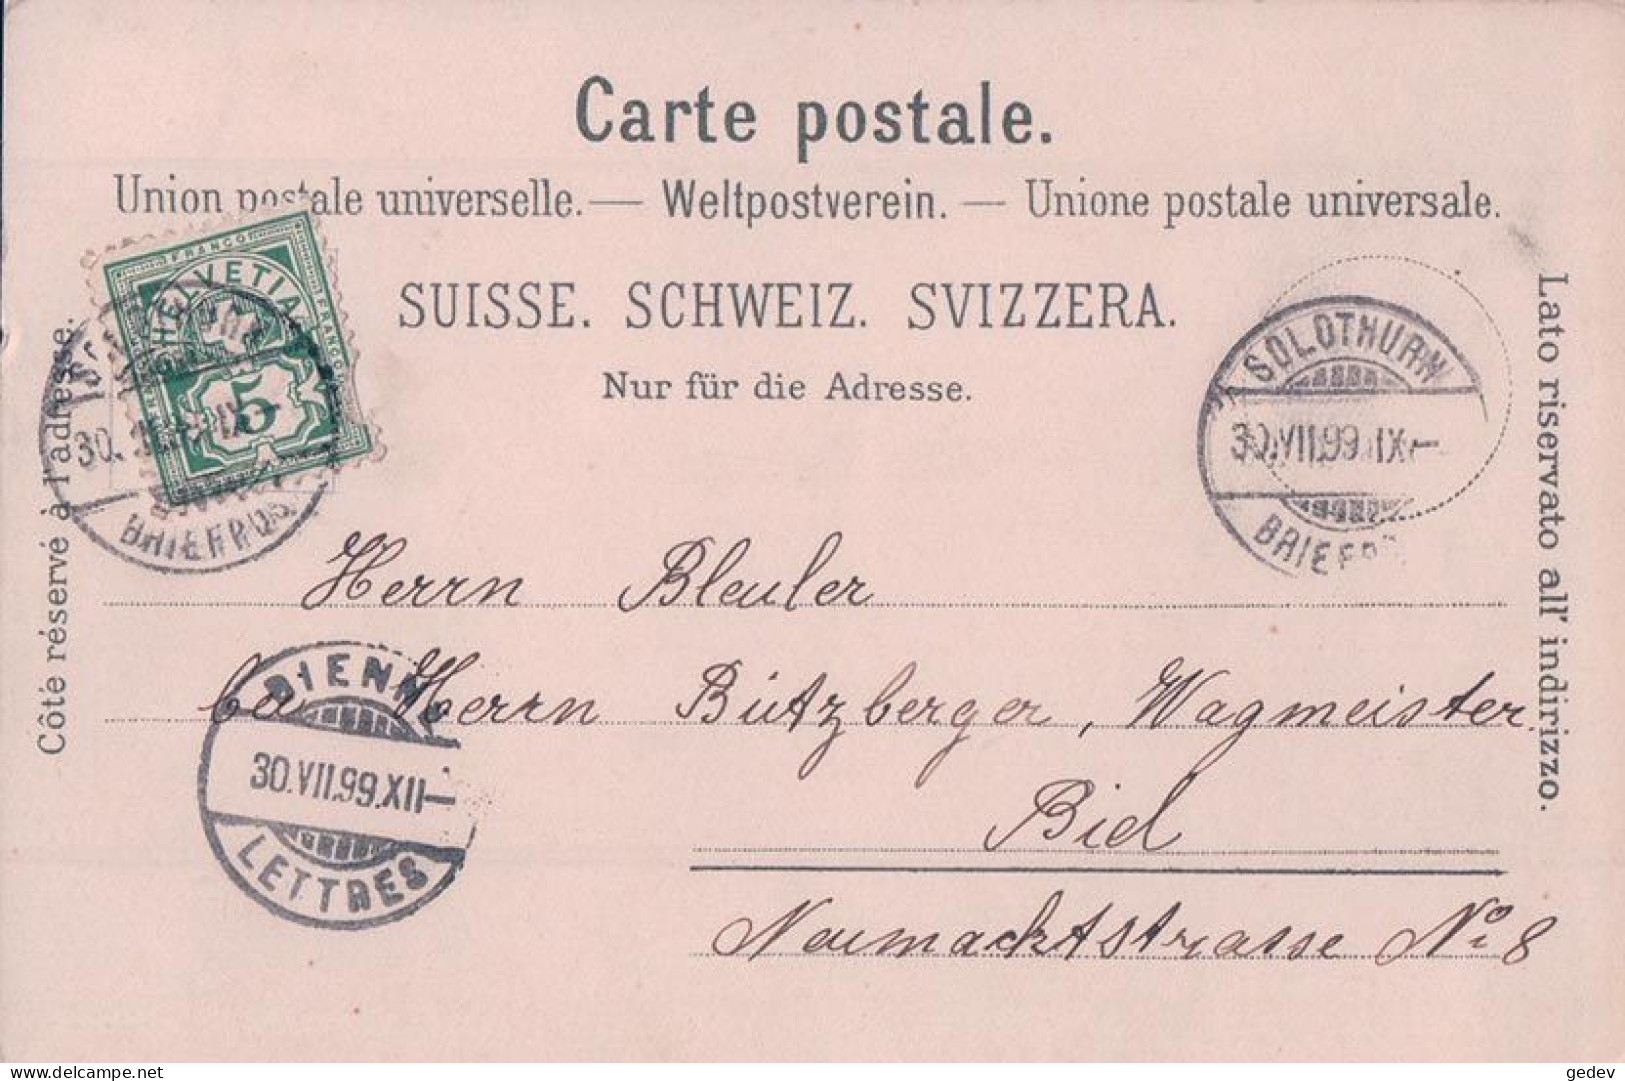 Carte postale.
Union postale universelle. — Weltpostverein. — Unione postale universale.
SUISSE. SCHWEIZ. SVIZZERA.
Nur für die Adresse.
Côté réservé à l'adresse.
Lato riservato all' indirizzo.
FRANCO
HELVETIA
FRANCO
5
30.
IX
SOLOTHURN
30.VII.99.IX—
Herrn Bleuler
bei Herrn Bützberger, Wagmeister
Biel
Neumacktstrasse No 8
30.VII.99.XII—
LETTRES
gedev